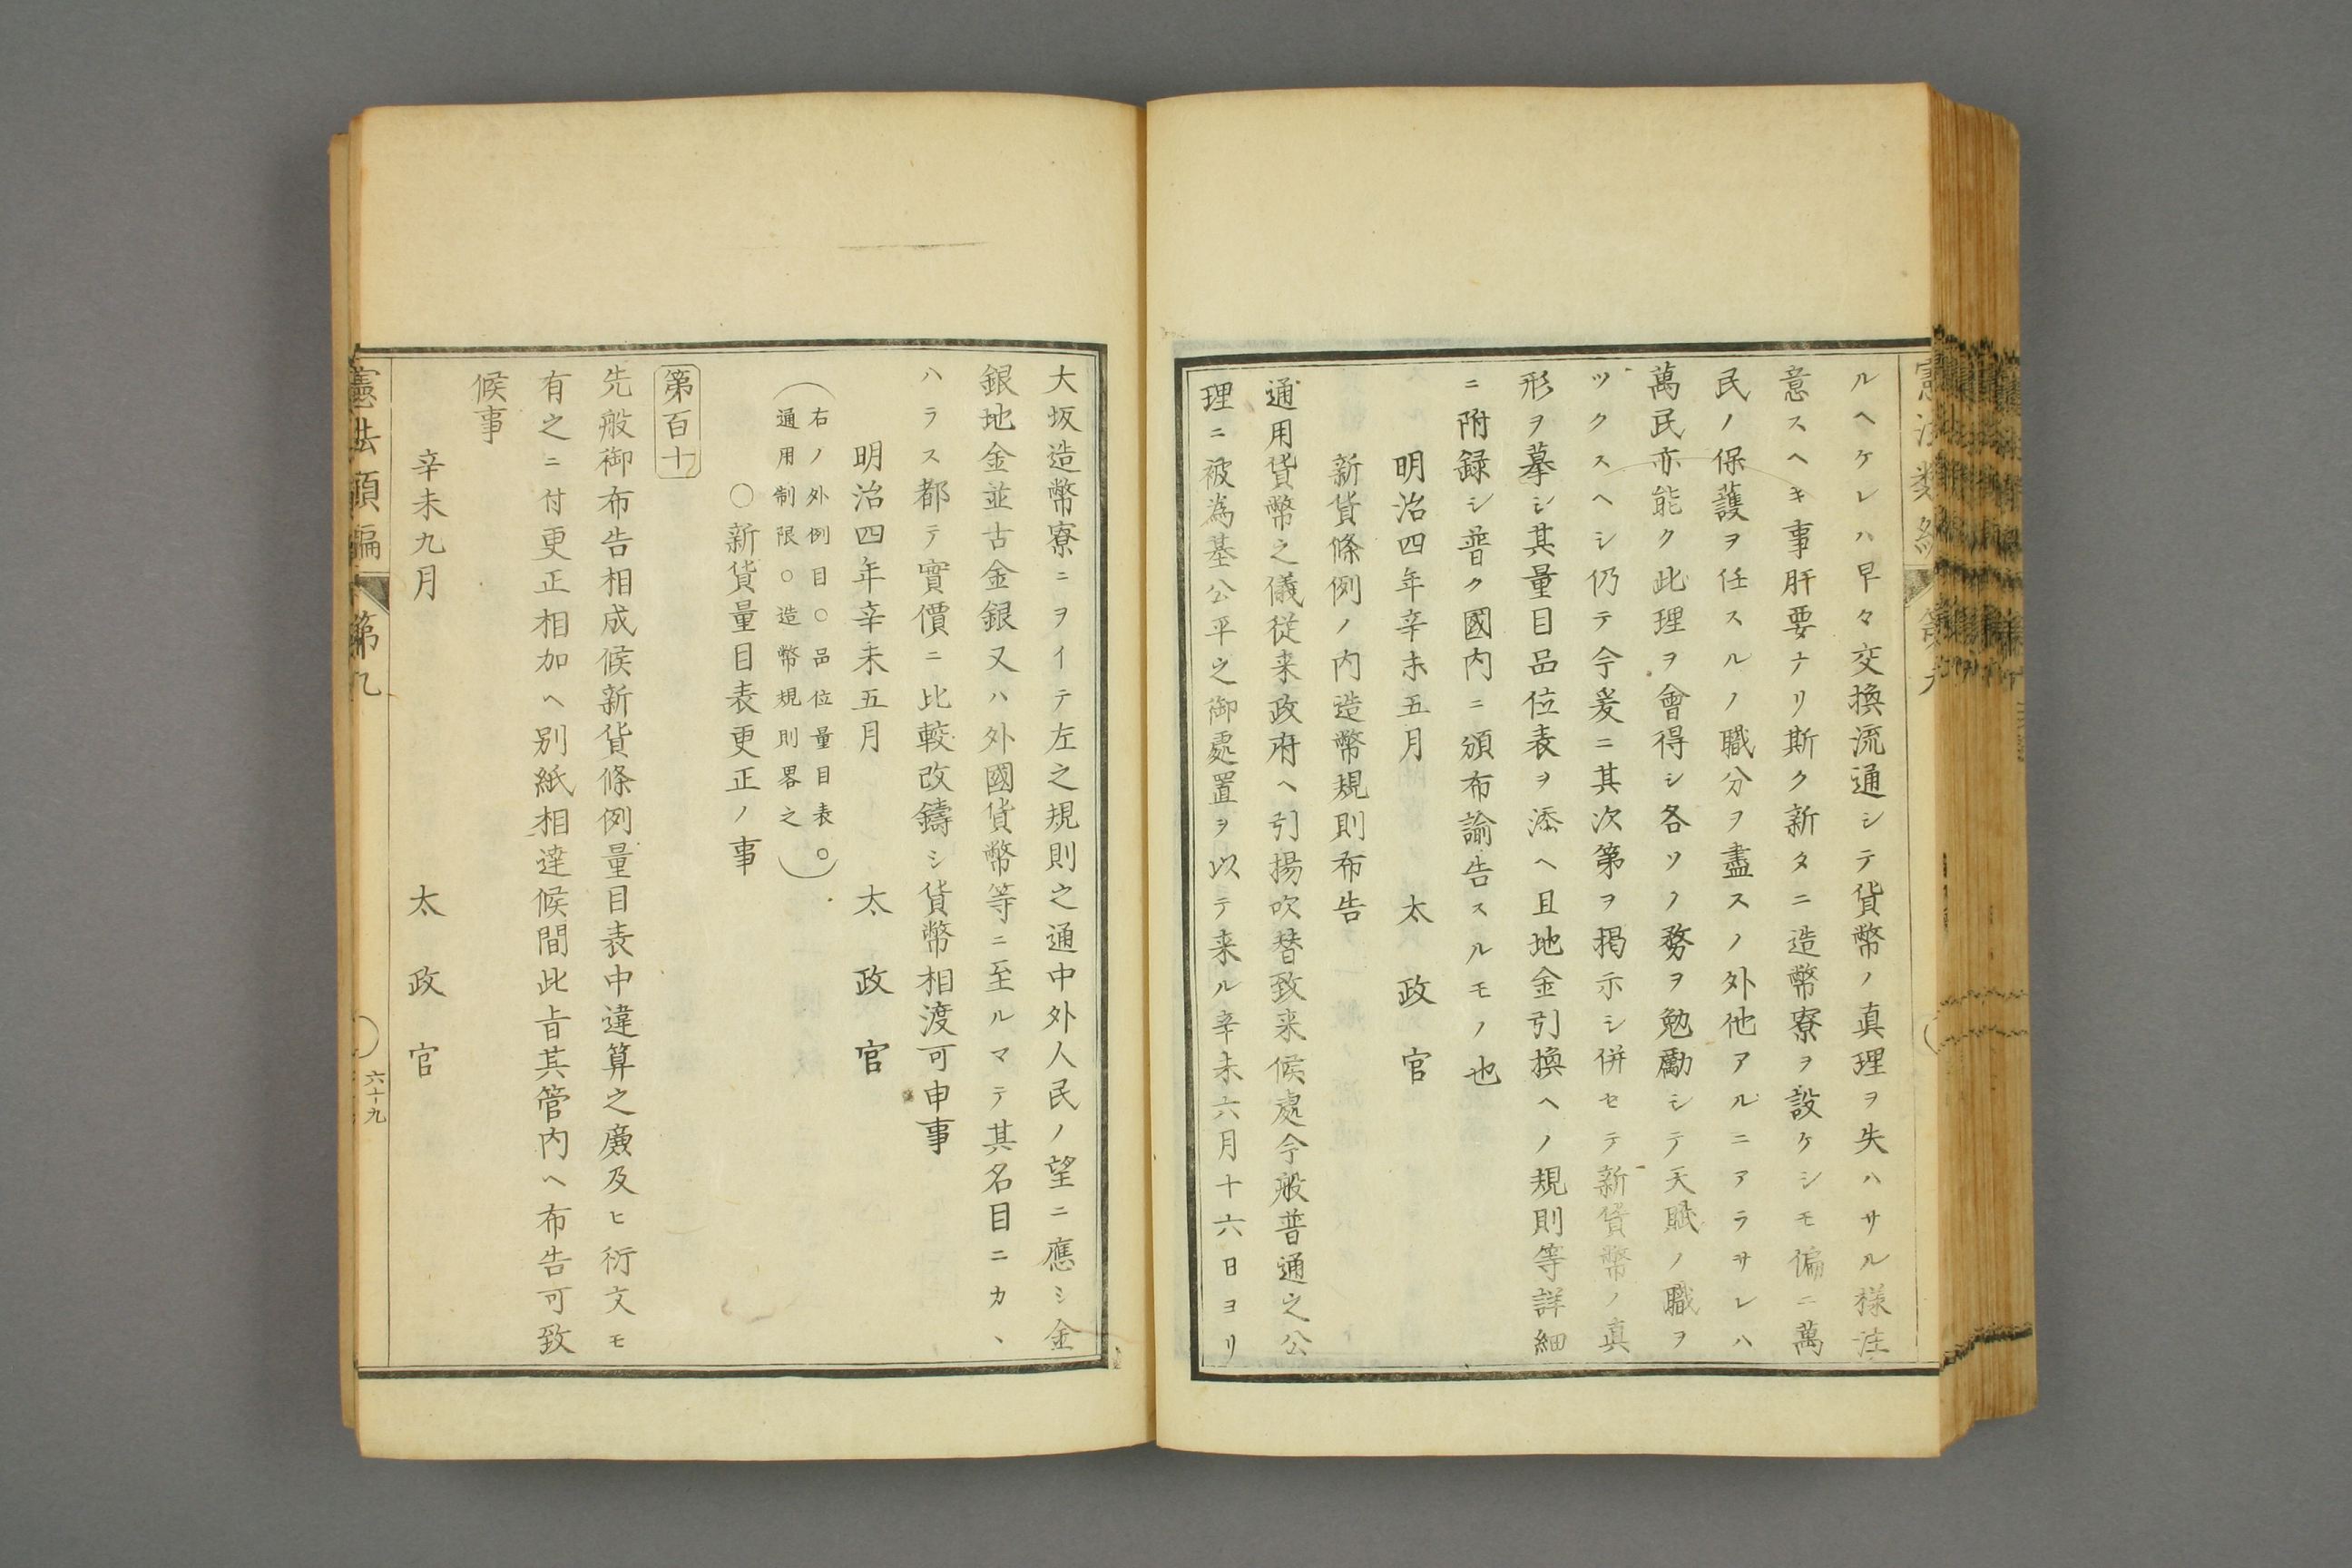 ルヘケレハ早々交換流通シテ貨幣ノ真理ヲ失ハサル様注
意スヘキ事肝要ナリ斯ク新タニ造幣寮ヲ設ケシモ偏ニ萬
民ノ保護ヲ任スルノ職分ヲ盡スノ外他アルニアラサレハ
萬民亦能ク此理ヲ會得シ各ソノ務ヲ勉勵シテ天賦ノ職ヲ
ツクスヘシ仍テ今爰ニ其次第ヲ掲示シ併セテ新貨幣ノ真
形ヲ摹シ其量目品位表ヲ添ヘ且地金引換ヘノ規則等詳細
ニ附録シ普ク國内ニ頒布諭告スルモノ也
明治四年辛未五月 太政官
新貨條例ノ内造幣規則布告
通用貨幣之儀従来政府ヘ引揚吹替致来候處今般普通之公
理ニ被為基公平之御處置ヲ以テ来ル辛未六月十六日ヨリ
大坂造幣寮ニヲイテ左之規則之通中外人民ノ望ニ應シ金
銀地金並古金銀又ハ外國貨幣等ニ至ルマテ其名目ニカヽ
ハラス都テ實價ニ比較改鑄シ貨幣相渡可申事
明治四年辛未五月 太政官
(右ノ外例目○品位量目表○
通用制限○造幣規則畧之)
○新貨量目表更正ノ事
第百十
先般御布告相成候新貨條例量目表中違算之廉及ヒ衍文モ
有之ニ付更正相加ヘ別紙相達候間此旨其管内ヘ布告可致
候事
辛未九月 太政官
憲法類編 第九
六十九